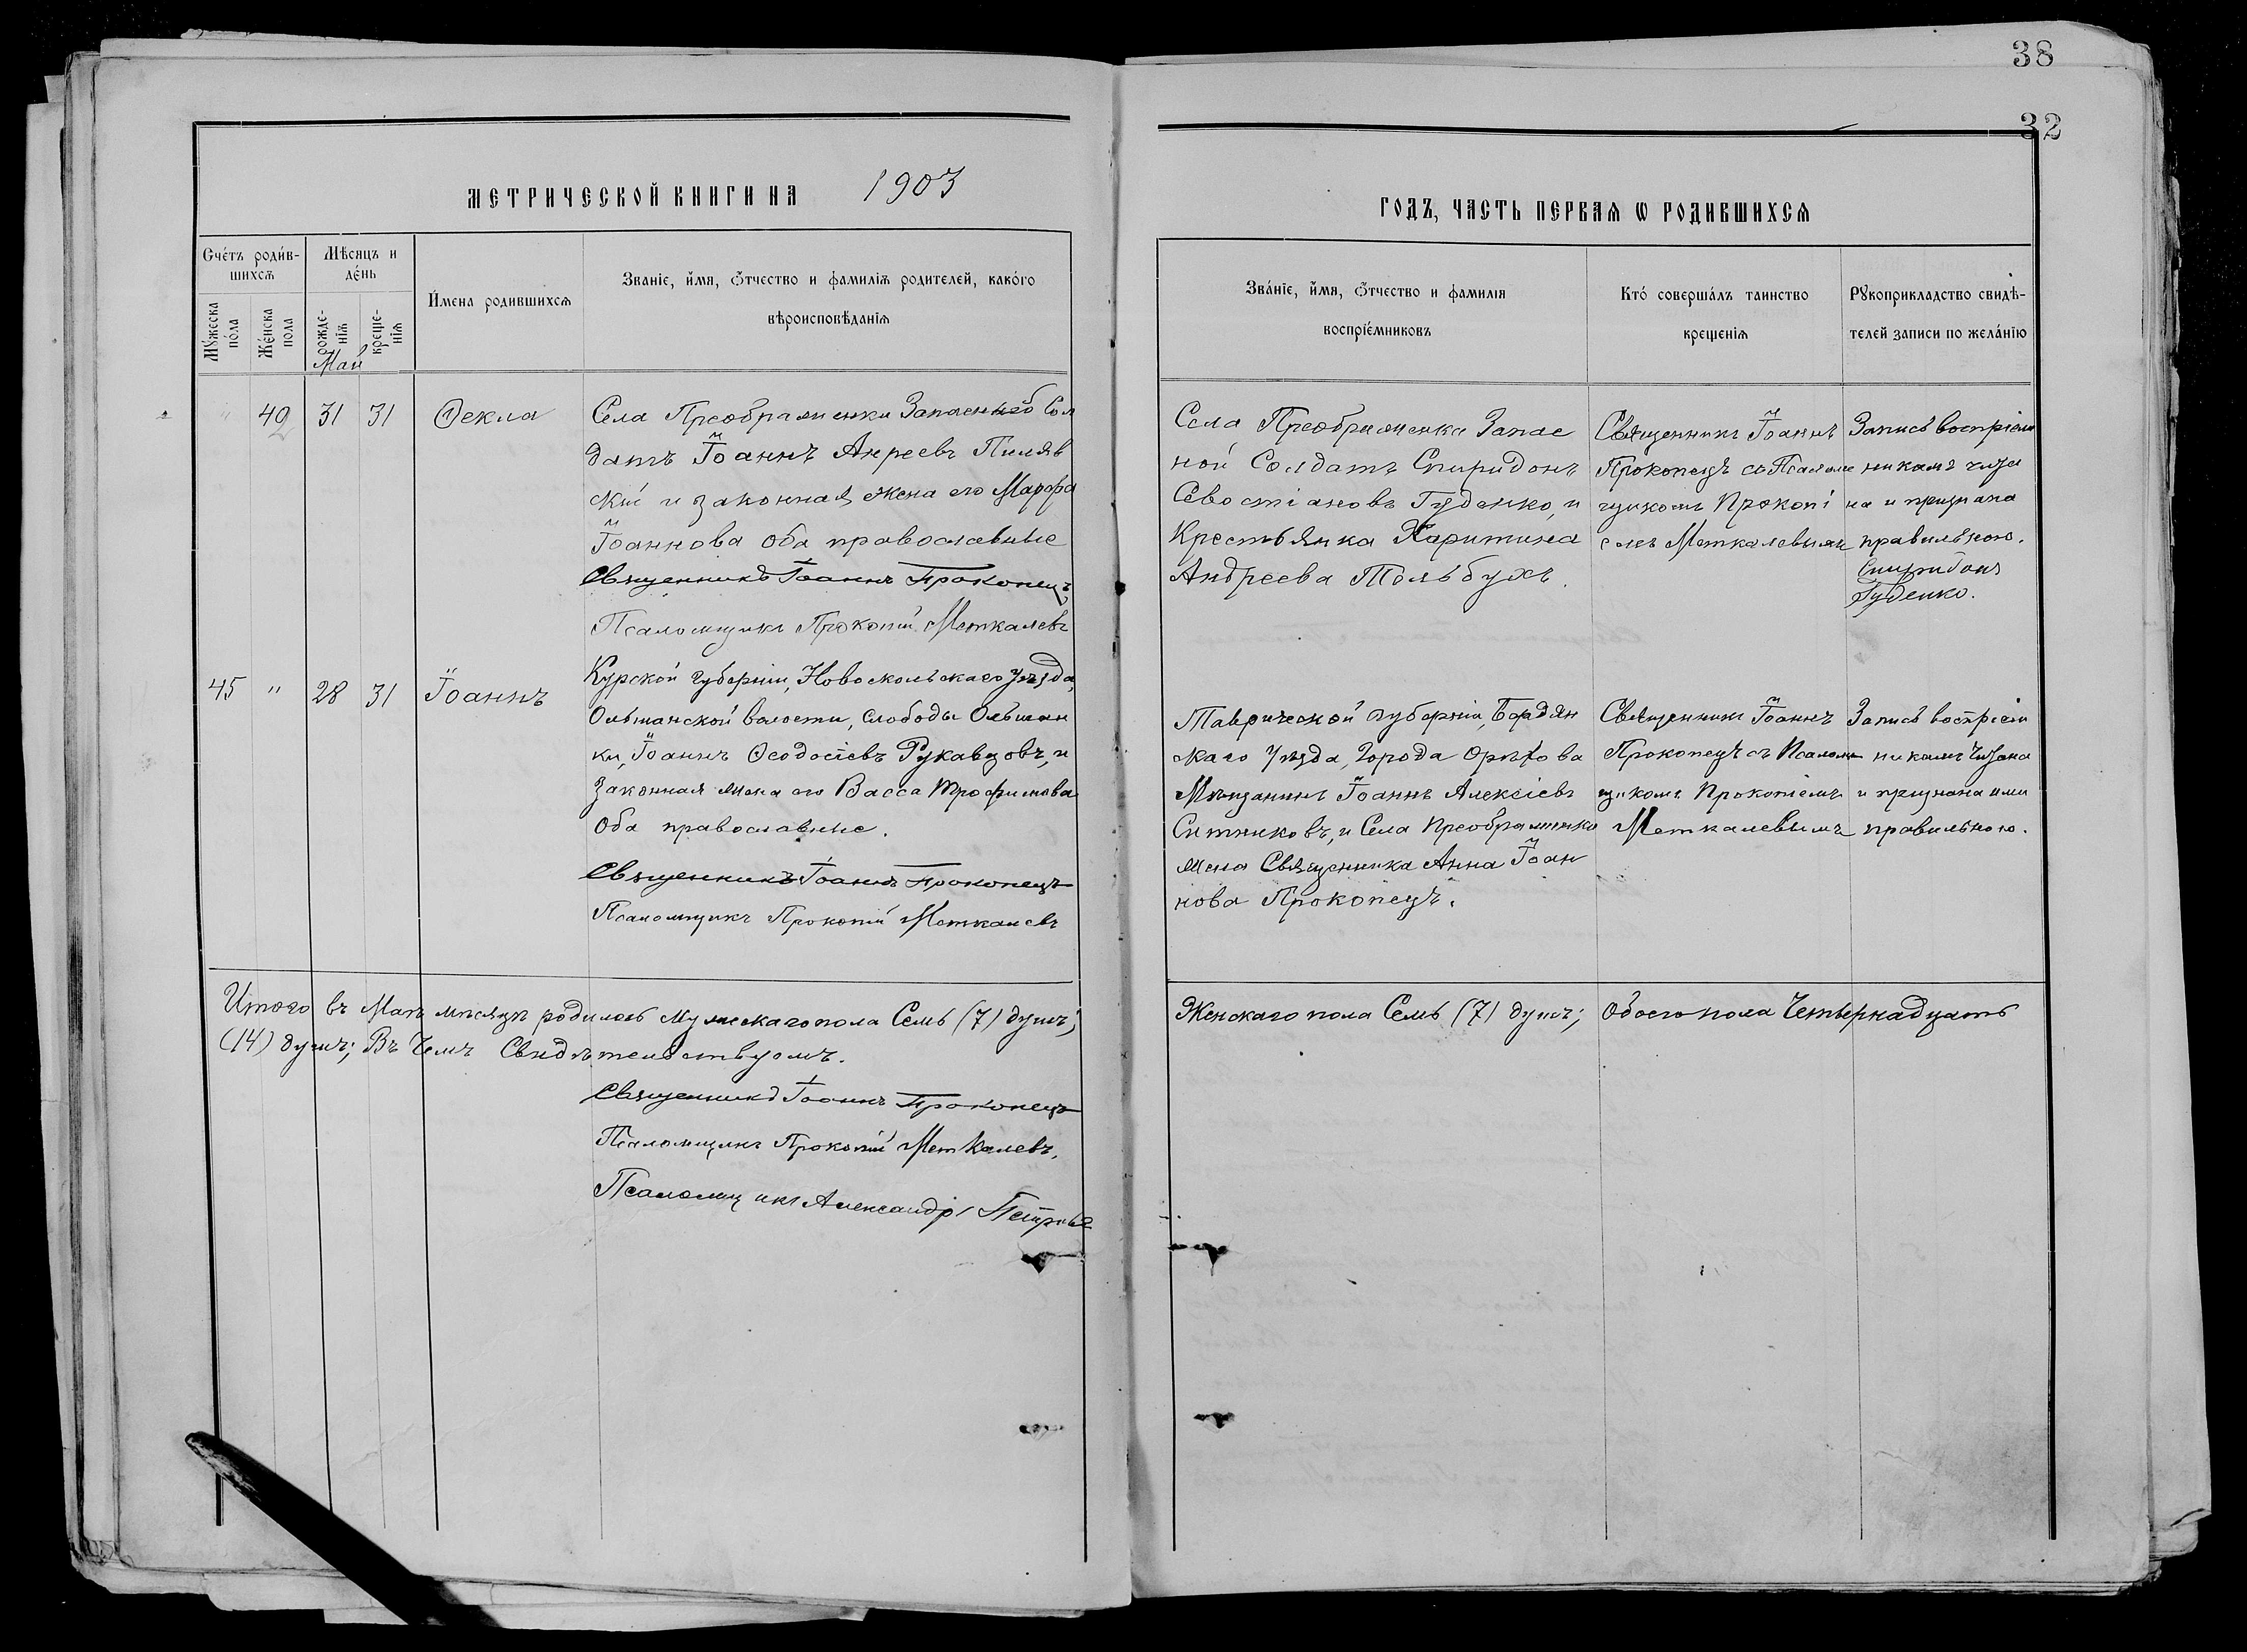 38
32
МЕТРИЧЕСКОЙ КНИГИ НА 1903
ГОДЪ, ЧАСТЬ ПЕРВАѦ Ѡ РОДИВШИХСѦ
Счéтъ роди́в-
шихсѧ
Мꙋ́жеска
по́ла
Же́нска
пола
Мѣ́сяцъ и
де́нь
рожде-
нїѧ
креще-
нїѧ
Май
И́мена родившихсѧ
Званїе, и́мя, ѻ́тчество и фамилїѧ родителей, како́го
вѣроисповѣ́данїѧ
Зва́нїе, и́мя, ѻ́тчество и фамилїя
воспрїе́мниковъ
Кто́ соверша́лъ таинство
крещенїѧ
Рꙋкоприкладство свидѣ-
телей записи по жела́нїю
" 42 31 31 Ѳекла
Села Преображенки Запасный Сол
датъ Іоаннъ Анреевъ Пиляв
скій и законная жена его Марфа
Іоаннова оба православные
Священникъ Іоаннъ Прокопецъ
Псаломщикъ Прокопій Меткалевъ
Села Преображенки Запас
ной Солдатъ Спиридонъ
Севостіановъ Гуденко, и
Крестьянка Харитина
Андреева Тольбухъ.
Священникъ Іоаннъ
Прокопецъ съ Псалом
щикомъ Прокопі
емъ Меткалевымъ
Запись воспріем
никамъ чита
на и признана
правильною.
Спиридонъ
Гуденко.
45 " 28 31 Іоаннъ
Курской губерніи, Новоскольскаго уѣзда,
Ольшанской волости, слободы Ольшан
ки, Іоаннъ Ѳеодосіевъ Рукавцовъ, и
Законная жена его Васса Трофимова
Оба православные.
Священникъ Іоаннъ Прокопецъ
Псаломщикъ Прокопій Меткалевъ
Таврической губерніи, Бердян
скаго Уѣзда, Города Орѣхова
Мѣщанинъ Іоаннъ Алексіевъ
Ситниковъ, и Села Преображенки
жена Священника Анна Іоан
нова Прокопецъ.
Священникъ Іоаннъ
Прокопецъ съ Псалом
щикомъ Прокопіемъ
Меткалевымъ
Запись воспріем
никамъ Читана
и признана ими
правильною.
Итого въ Маѣ мѣсяцѣ родилось мужескаго пола Семь (7) душъ; Женскаго пола Семь (7) душъ; Обоего пола Четырнадцать
(14) душъ; Въ Чемъ Свидѣтельствуемъ.
Священникъ Іоаннъ Прокопецъ
Псаломщикъ Прокопій Меткалевъ,
Псаломщикъ Александръ Петровъ